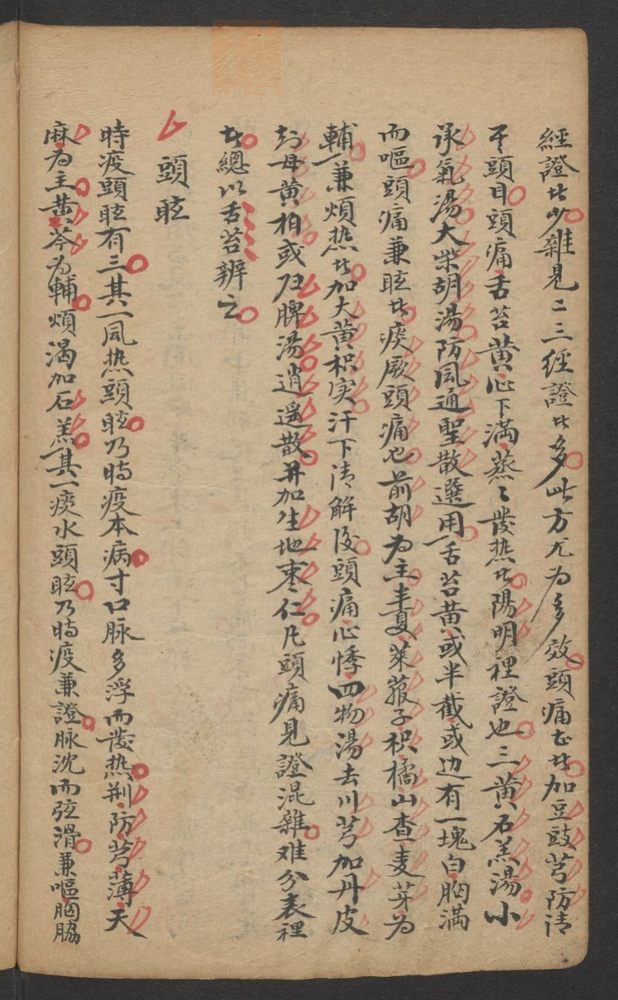 經證者少雜見二三經證者多此方尤为多效頭痛甚者加豆豉芎防清
平頭目頭痛舌苔黄心下满蒸〻發热者陽明裡證也三黄石羔湯小
承氣湯大柴胡湯防風通聖散選用舌苔黄或半截或边有一塊白胸満
而嘔頭痛兼眩者痰厥頭痛也前胡为主半夏萊菔子枳橘山查麦芽为
輔兼煩热者加大黄枳实汗下清解後頭痛心悸四物湯去川芎加丹皮
知母黄柏或归脾湯逍遥散并加生地棗仁凡頭痛見證混雜难分表裡
者總以舌苔辨之
頭眩
時疫頭眩有三其一風热頭眩乃時疫本病寸口脉多浮而發热荆防芎薄天
麻为主黄芩为輔煩渴加石羔其一痰水頭眩乃時疫兼證脉沈而弦滑兼嘔胸脇